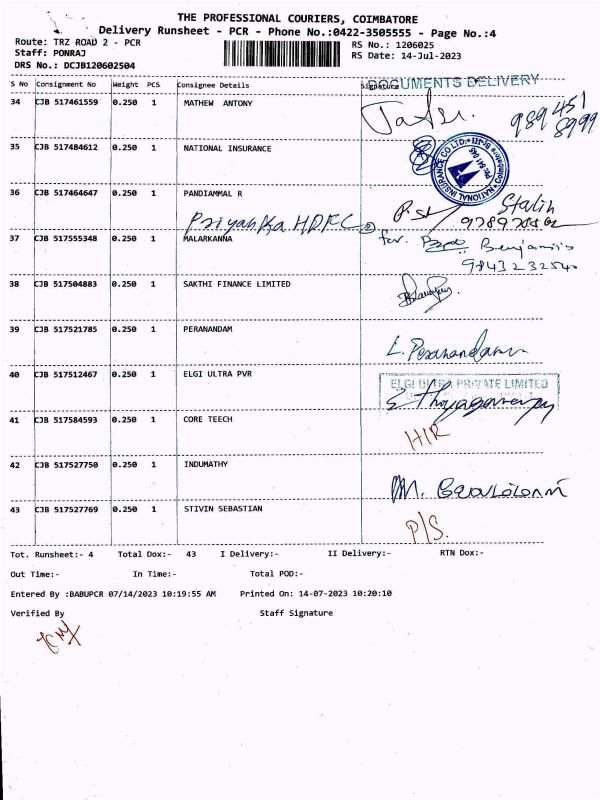 THE PROFESSIONAL COURIERS, COIMBATORE
Delivery Runsheet - PCR - Phone No.:0422-3505555 - Page No.:4
Route: TRZ ROAD 2 - PCR RS No.: 1206025
Staff: PONRAJ RS Date: 14-Jul-2023
DRS No.: DCJB120602504
S No Consignment No Weight PCS Consignee Details Signature
DOCUMENTS DELIVERY
34 CJB 517461559 0.250 1 MATHEW ANTONY
989 451
8999
35 CJB 517484612 0.250 1 NATIONAL INSURANCE
NATIONAL INSURANCE CO LTD.
36 CJB 517464647 0.250 1 PANDIAMMAL R
Stalin
Priyanka HDFC
37 CJB 517555348 0.250 1 MALARKANNA
for. Benjamin
9843232540
38 CJB 517504883 0.250 1 SAKTHI FINANCE LIMITED
39 CJB 517521785 0.250 1 PERANANDAM
L. Peranandam
40 CJB 517512467 0.250 1 ELGI ULTRA PVR
ELGI ULTRA PRIVATE LIMITED
41 CJB 517584593 0.250 1 CORE TEECH
H/R
42 CJB 517527750 0.250 1 INDUMATHY
43 CJB 517527769 0.250 1 STIVIN SEBASTIAN
P/S.
Tot. Runsheet:- 4 Total Dox:- 43 I Delivery:- II Delivery:- RTN Dox:-
Out Time:- In Time:- Total POD:-
Entered By :BABUPCR 07/14/2023 10:19:55 AM Printed On: 14-07-2023 10:20:10
Verified By Staff Signature